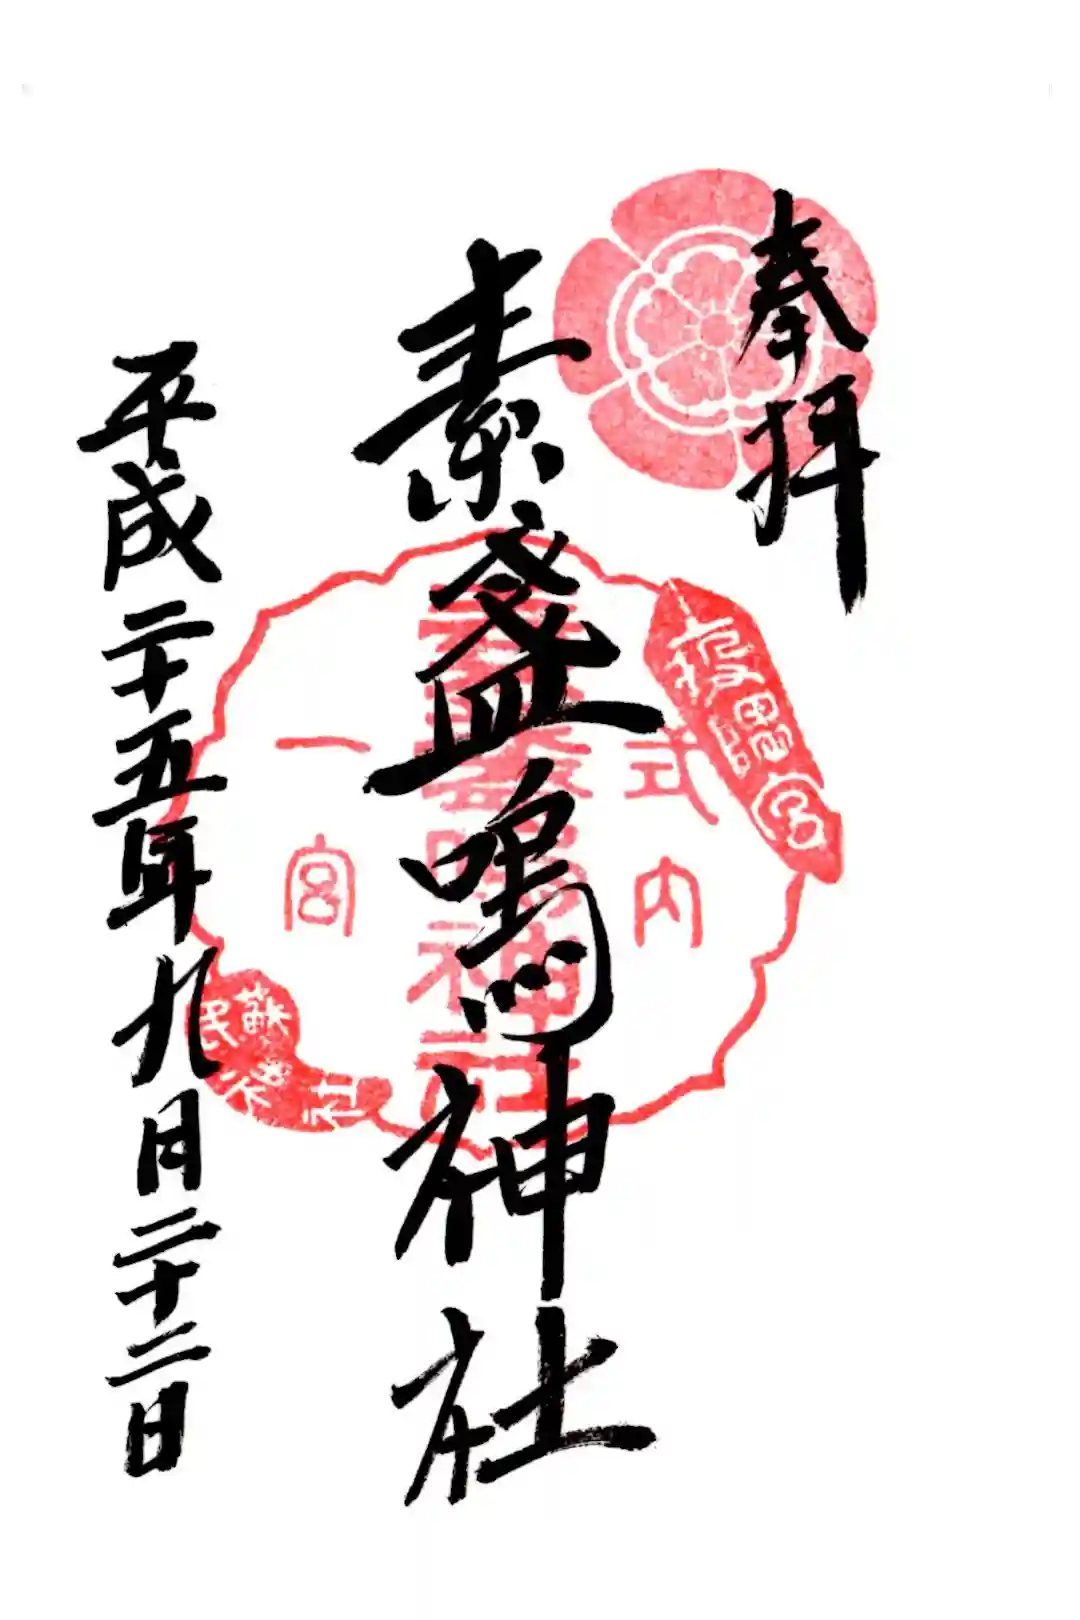 奉拝
式内
素盞嗚神社
素盞嗚神社
一宮
蘇民将来
平成二十五年九月二十二日